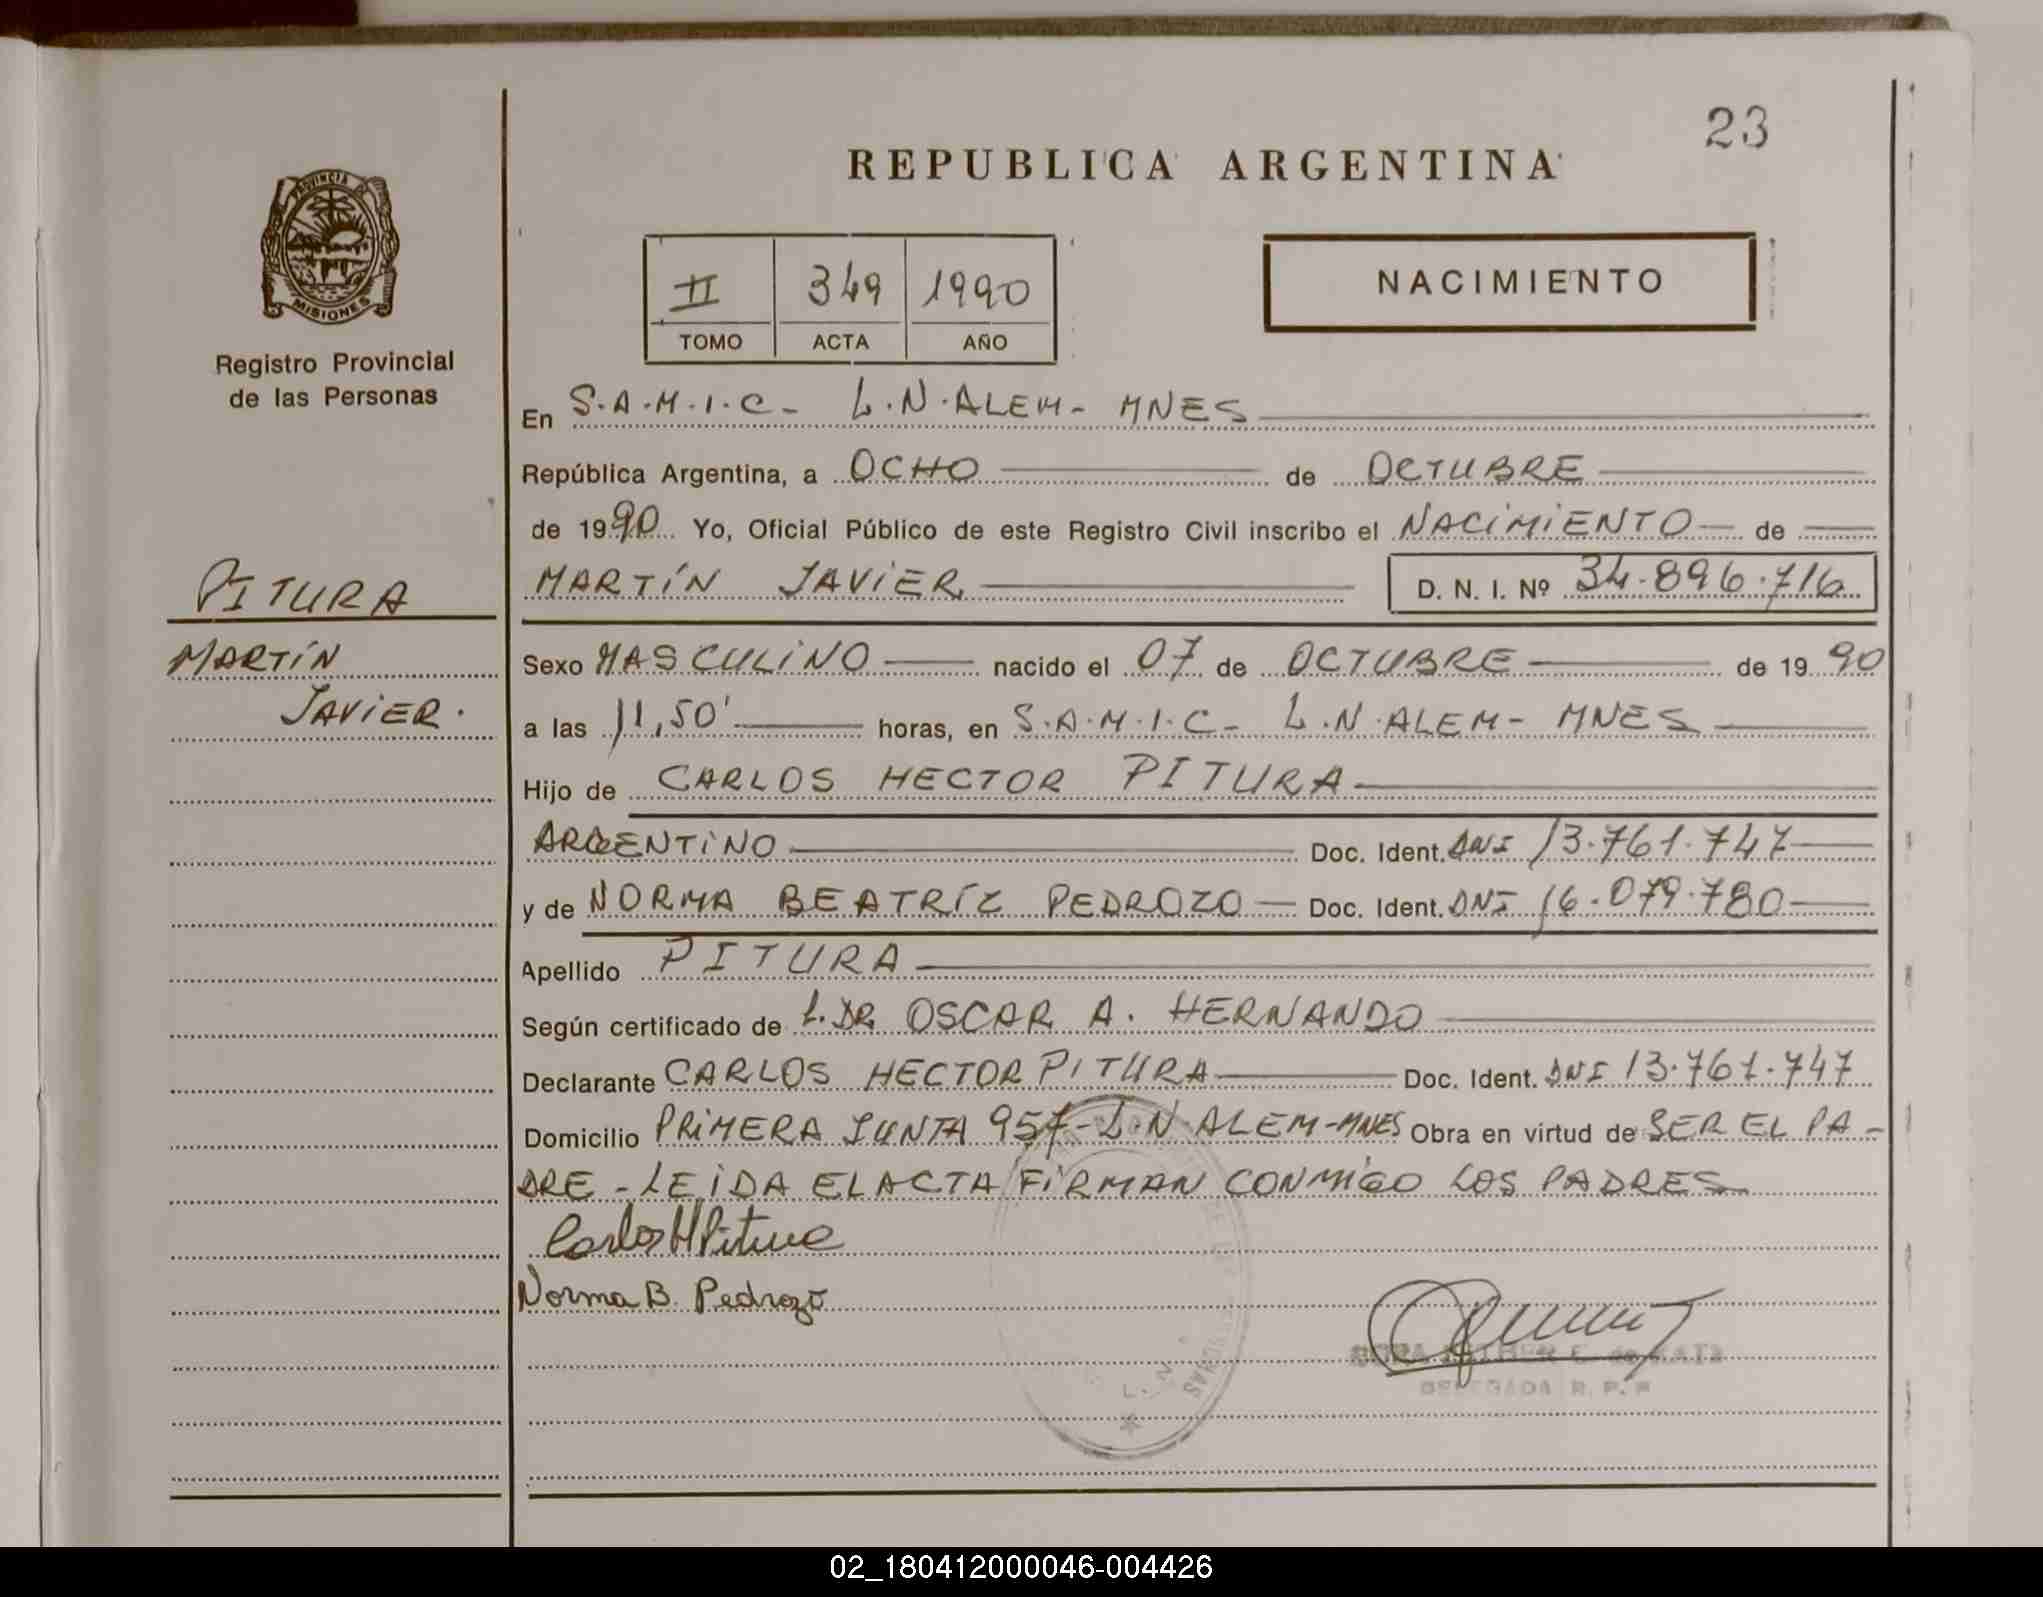 23
REPUBLICA ARGENTINA
PROVINCIA DE
MISIONES
Registro Provincial
de las Personas
II 349 1990
TOMO ACTA AÑO
NACIMIENTO
En S.A.M.I.C- L.N.ALEM- MNES
República Argentina, a OCHO de OCTUBRE
de 1990 Yo, Oficial Público de este Registro Civil inscribo el NACIMIENTO de
PITURA
MARTÍN JAVIER D. N. I. Nº 34.896.716
MARTÍN
JAVIER.
Sexo MASCULINO nacido el 07 de OCTUBRE de 1990
a las 11,50' horas, en S.A.M.I.C- L.N.ALEM- MNES
Hijo de CARLOS HECTOR PITURA
ARGENTINO Doc. Ident. DNI 13.761.747
y de NORMA BEATRÍZ PEDROZO Doc. Ident. DNI 16.079.780
Apellido PITURA
Según certificado de L. DR OSCAR A. HERNANDO
Declarante CARLOS HECTOR PITURA Doc. Ident. DNI 13.761.747
Domicilio PRIMERA JUNTA 957-L.N ALEM-MNES Obra en virtud de SER EL PA-
DRE - LEIDA EL ACTA FIRMAN CONMIGO LOS PADRES
Carlos H Pitura
Norma B. Pedrozo
DELEGADA R. P. P
L. N.
02_180412000046-004426